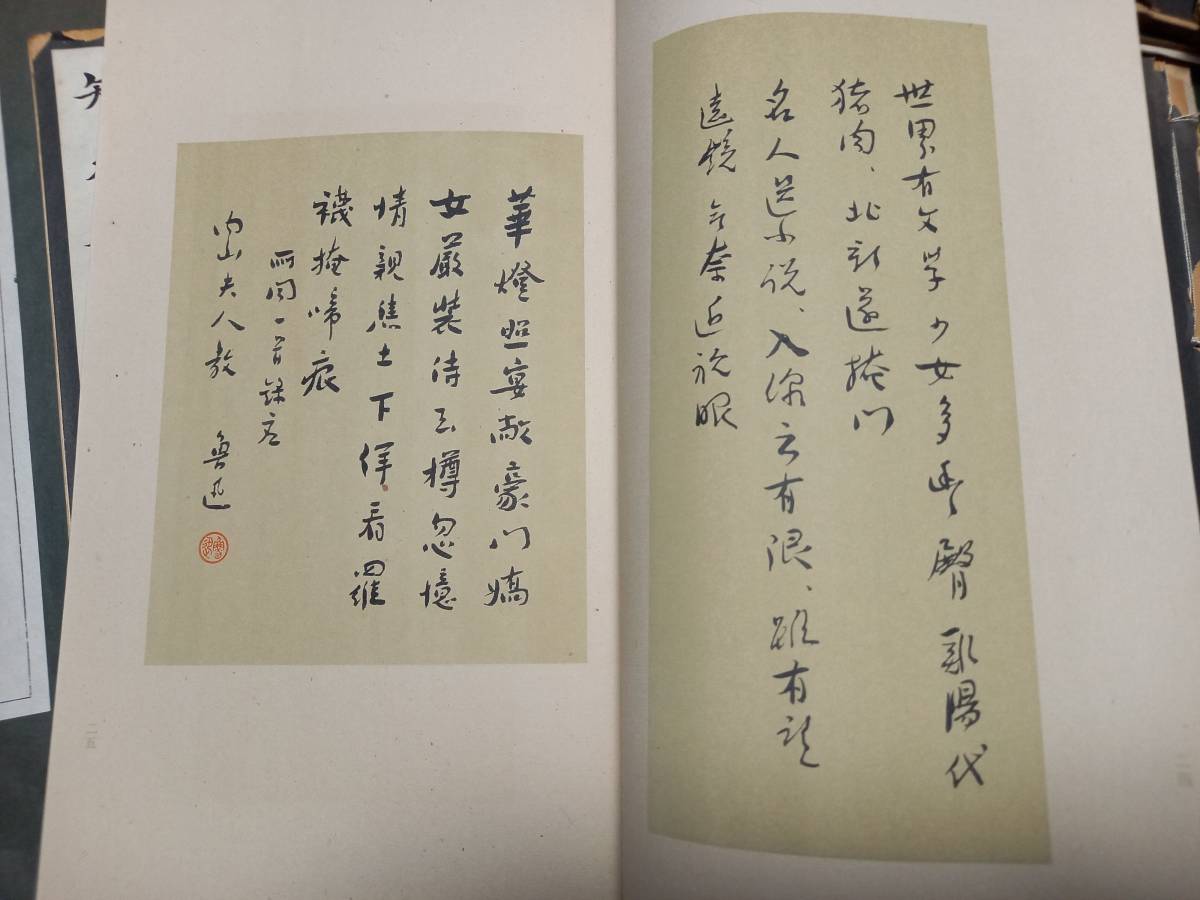 世界有文学 少女多丰臀 雞湯代
猪肉、北新遂掩门
名人选小说、入線云有限、雖有望
遠鏡 无奈近視眼
華燈照宴敞豪门嬌
女嚴裝侍玉樽忽憶
情親焦土下佯看羅
襪掩啼痕
所闻一首錄应
内山夫人教 魯迅
魯迅
二五